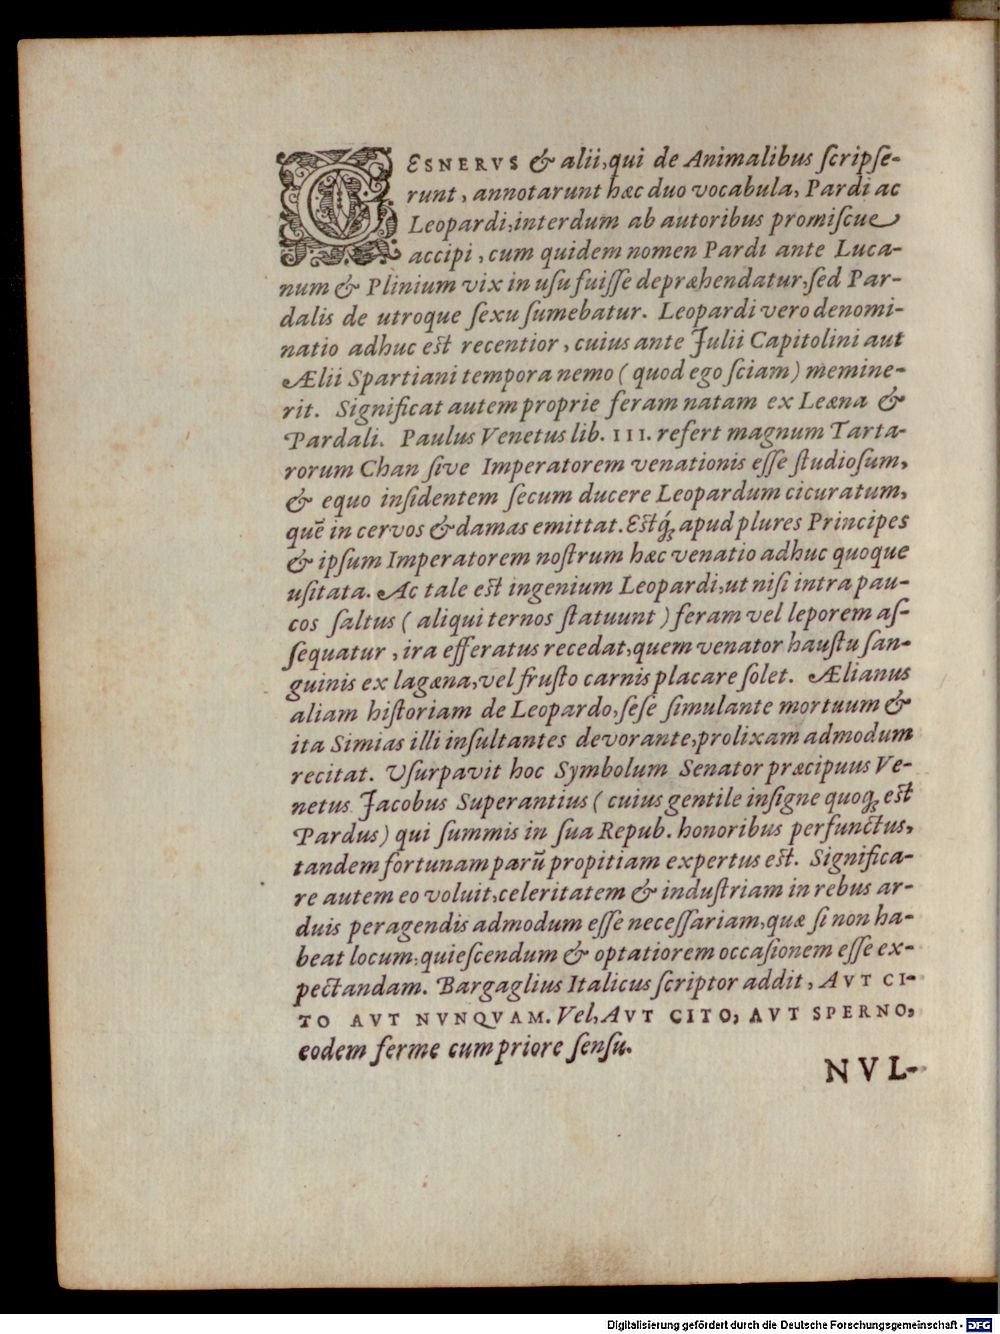 GESNERVS & alii, qui de Animalibus ſcripſe-
runt, annotarunt hæc duo vocabula, Pardi ac
Leopardi, interdum ab autoribus promiſcue
accipi, cum quidem nomen Pardi ante Luca-
num & Plinium vix in uſu fuiſſe depræhendatur, ſed Par-
dalis de utroque ſexu ſumebatur. Leopardi vero denomi-
natio adhuc est recentior, cuius ante Julii Capitolini aut
Ælii Spartiani tempora nemo (quod ego ſciam) memine-
rit. Significat autem proprie feram natam ex Leæna &
Pardali. Paulus Venetus lib. III. refert magnum Tarta-
rorum Chan ſive Imperatorem venationis eſſe ſtudioſum,
& equo inſidentem ſecum ducere Leopardum cicuratum,
quē in cervos & damas emittat. Estq́; apud plures Principes
& ipſum Imperatorem noſtrum hæc venatio adhuc quoque
uſitata. Ac tale est ingenium Leopardi, ut niſi intra pau-
cos ſaltus (aliqui ternos ſtatuunt) feram vel leporem aſ-
ſequatur, ira efferatus recedat, quem venator hauſtu ſan-
guinis ex lagæna, vel fruſto carnis placare ſolet. Ælianus
aliam hiſtoriam de Leopardo, ſeſe ſimulante mortuum &
ita Simias illi inſultantes devorante, prolixam admodum
recitat. Uſurpavit hoc Symbolum Senator præcipuus Ve-
netus Jacobus Superantius (cuius gentile inſigne quoq; est
Pardus) qui ſummis in ſua Repub. honoribus perfunctus,
tandem fortunam parū propitiam expertus est. Significa-
re autem eo voluit, celeritatem & induſtriam in rebus ar-
duis peragendis admodum eſſe neceſſariam, quæ ſi non ha-
beat locum, quieſcendum & optatiorem occaſionem eſſe ex-
pectandam. Bargaglius Italicus ſcriptor addit, AVT CI-
TO AVT NVNQVAM. Vel, AVT CITO, AVT SPERNO,
eodem ferme cum priore ſenſu.
NVL-
Digitalisierung gefördert durch die Deutsche Forschungsgemeinschaft - DFG